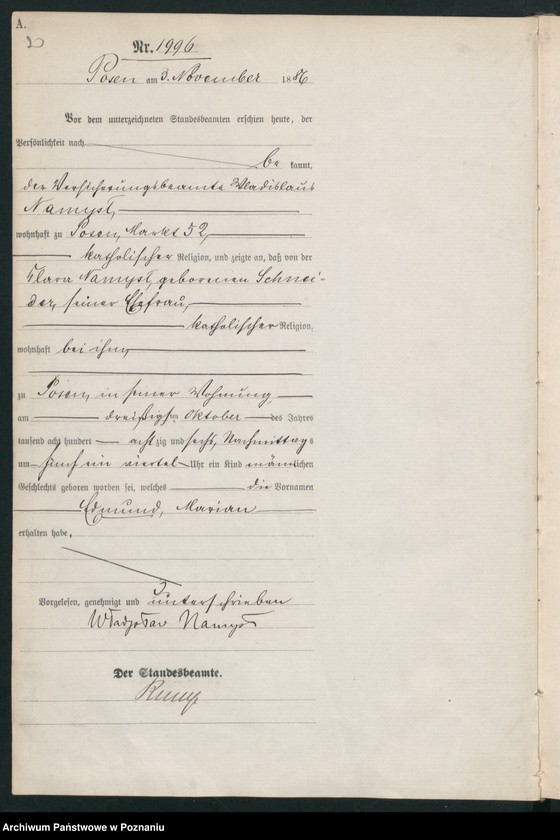 A.
Nr. 1996
Posen am 3. November 1886
Vor dem unterzeichneten Standesbeamten erschien heute, der
Persönlichkeit nach
be kannt,
der Versicherungsbeamte Wladislaus
Namysl,
wohnhaft zu Posen, Markt 52,
katholischer Religion, und zeigte an, daß von der
Klara Namysl, geborenen Schnei-
der, seiner Ehefrau,
katholischer Religion,
wohnhaft bei ihm,
zu Posen, in seiner Wohnung
am dreißigsten Oktober des Jahres
tausend acht hundert achtzig und sechs, Nachmittags
um fünf ein viertel Uhr ein Kind männlichen
Geschlechts geboren worden sei, welches die Vornamen
Edmund, Marian
erhalten habe.
Vorgelesen, genehmigt und unterschrieben
Władysław Namysł
Der Standesbeamte.
Archiwum Państwowe w Poznaniu